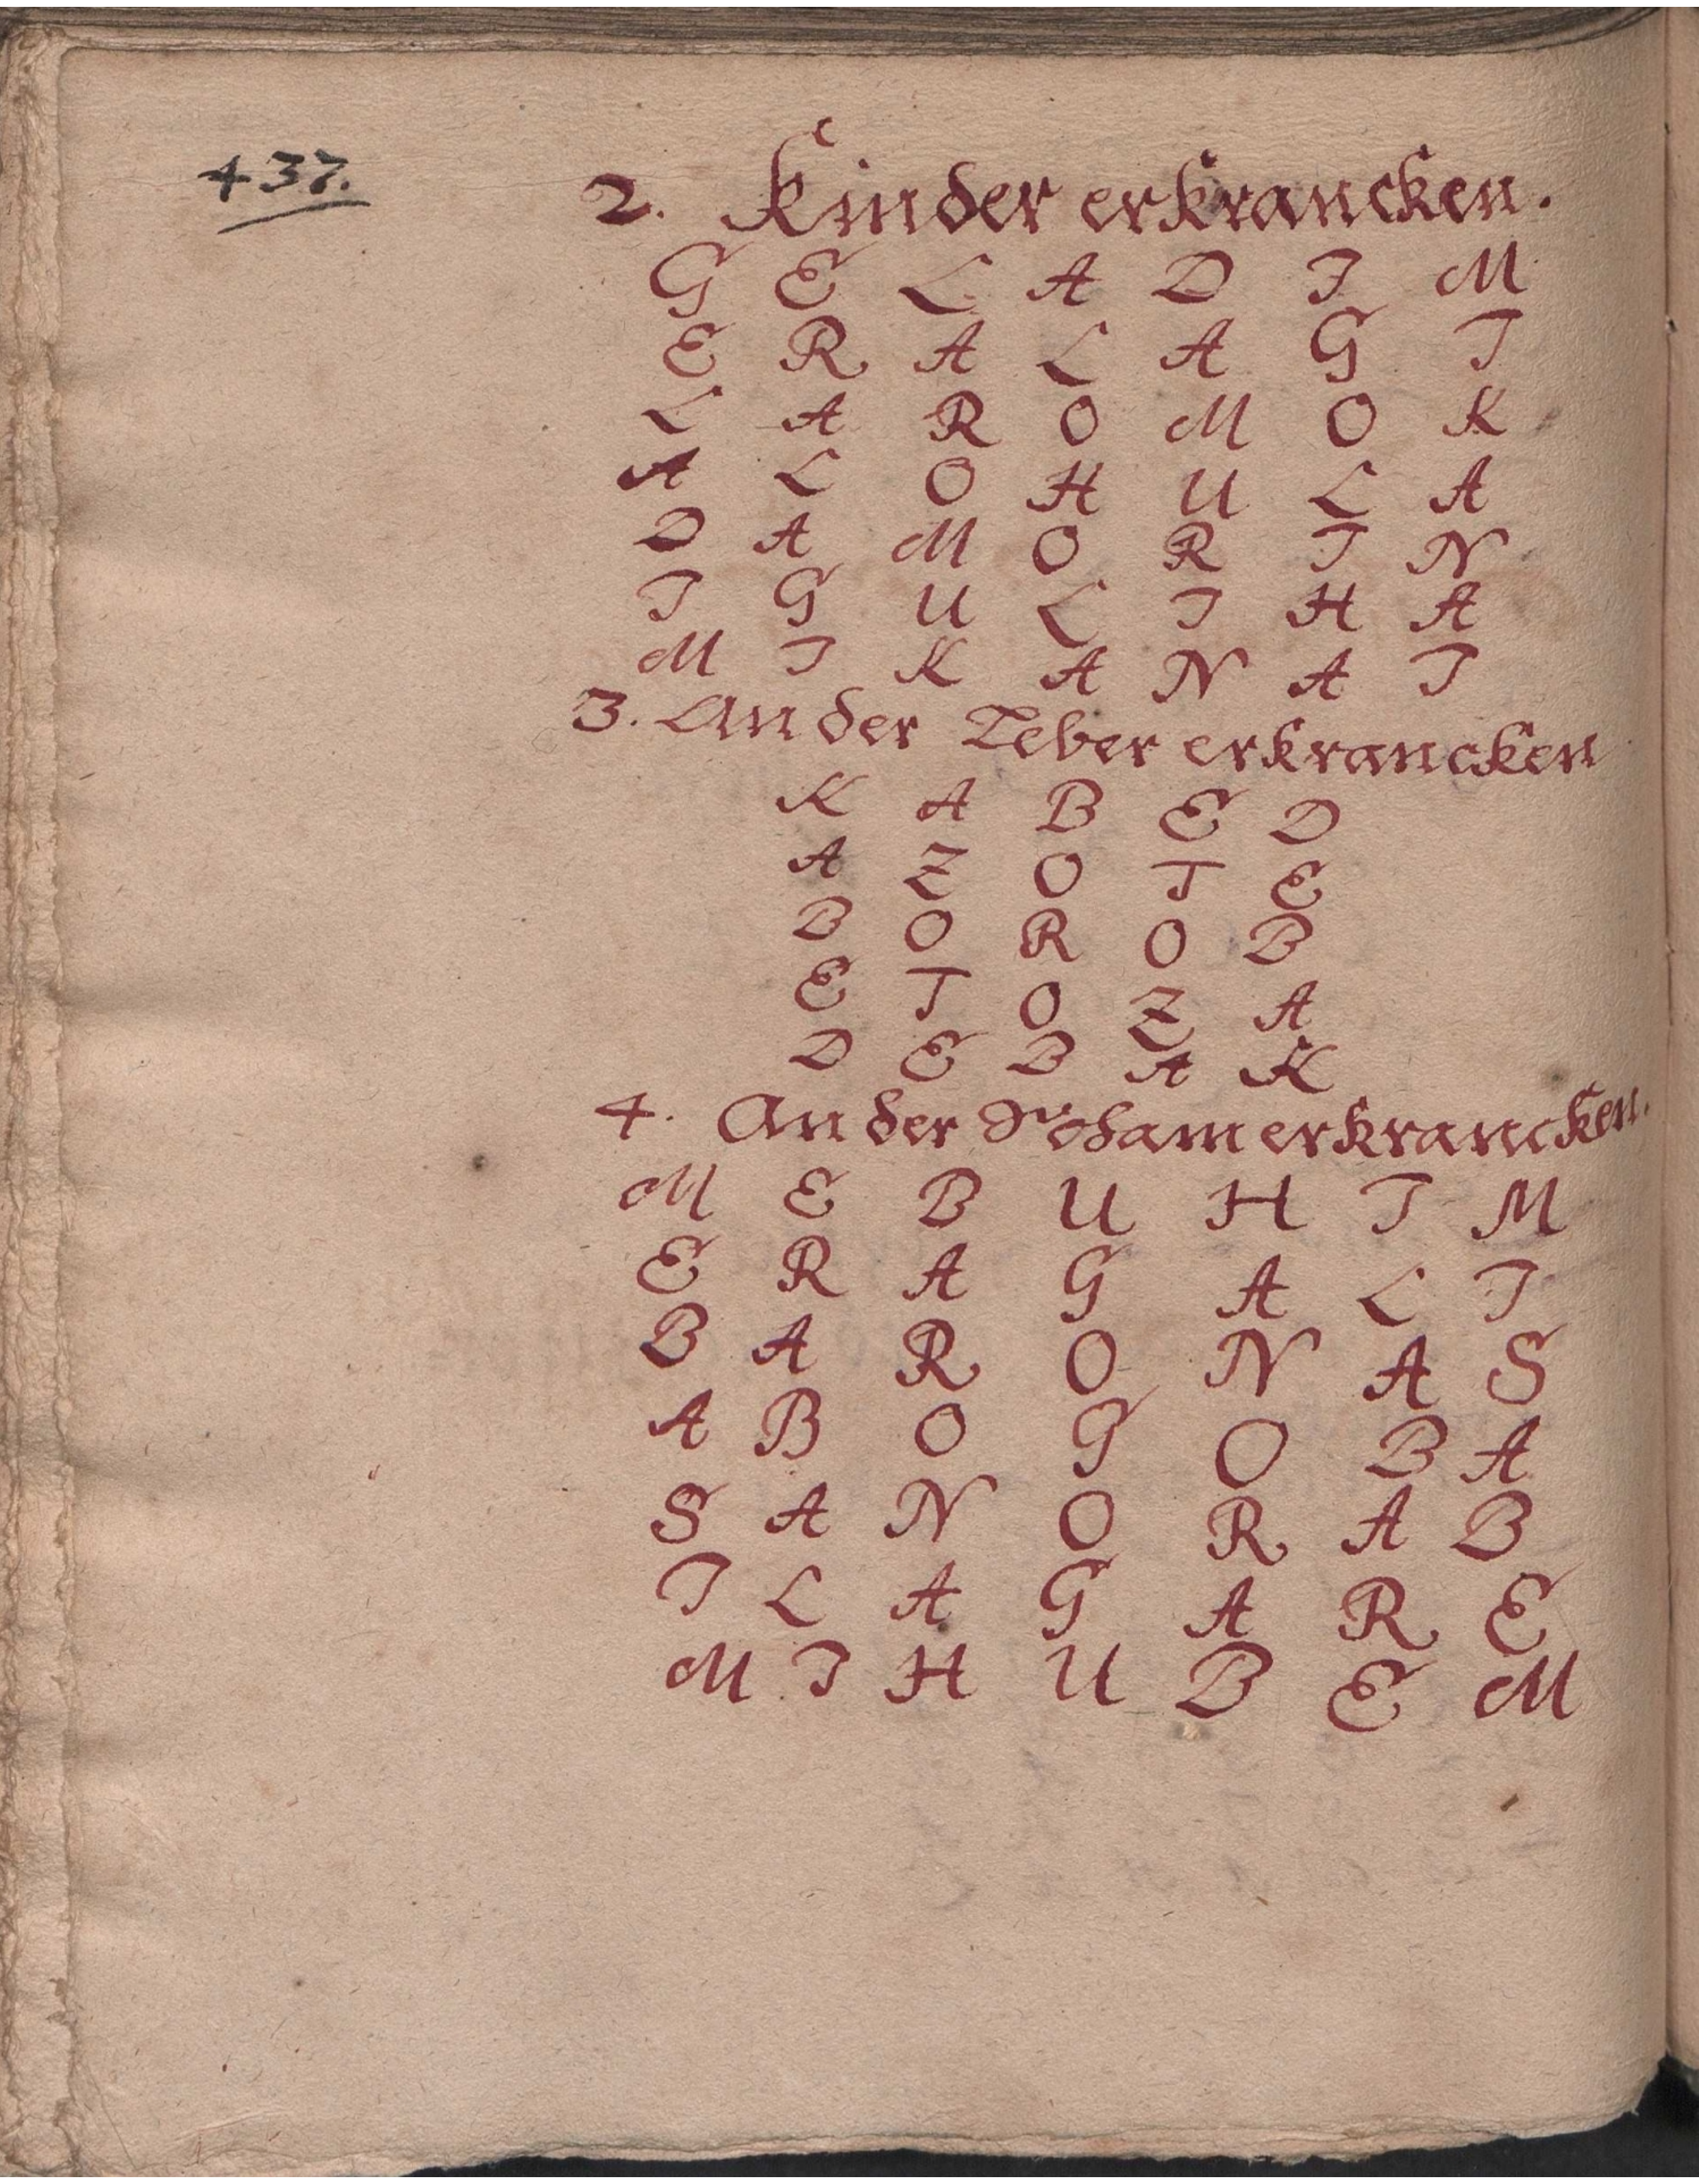 437.
2. Kinder erkrancken.
G E L A D I M
E R A L A G I
L A R O M O K
A L O H U L A
D A M O R I N
I G U L I H A
M I K A N A I
3. An der Leber erkrancken
K A B E D
A Z O T E
B O R O B
E T O Z A
D E B A K
4. An der erkrancken.
M E B U H I M
E R A G A L I
B A R O N A S
A B O G O B A
S A N O R A B
I L A G A R E
M I H U B E M